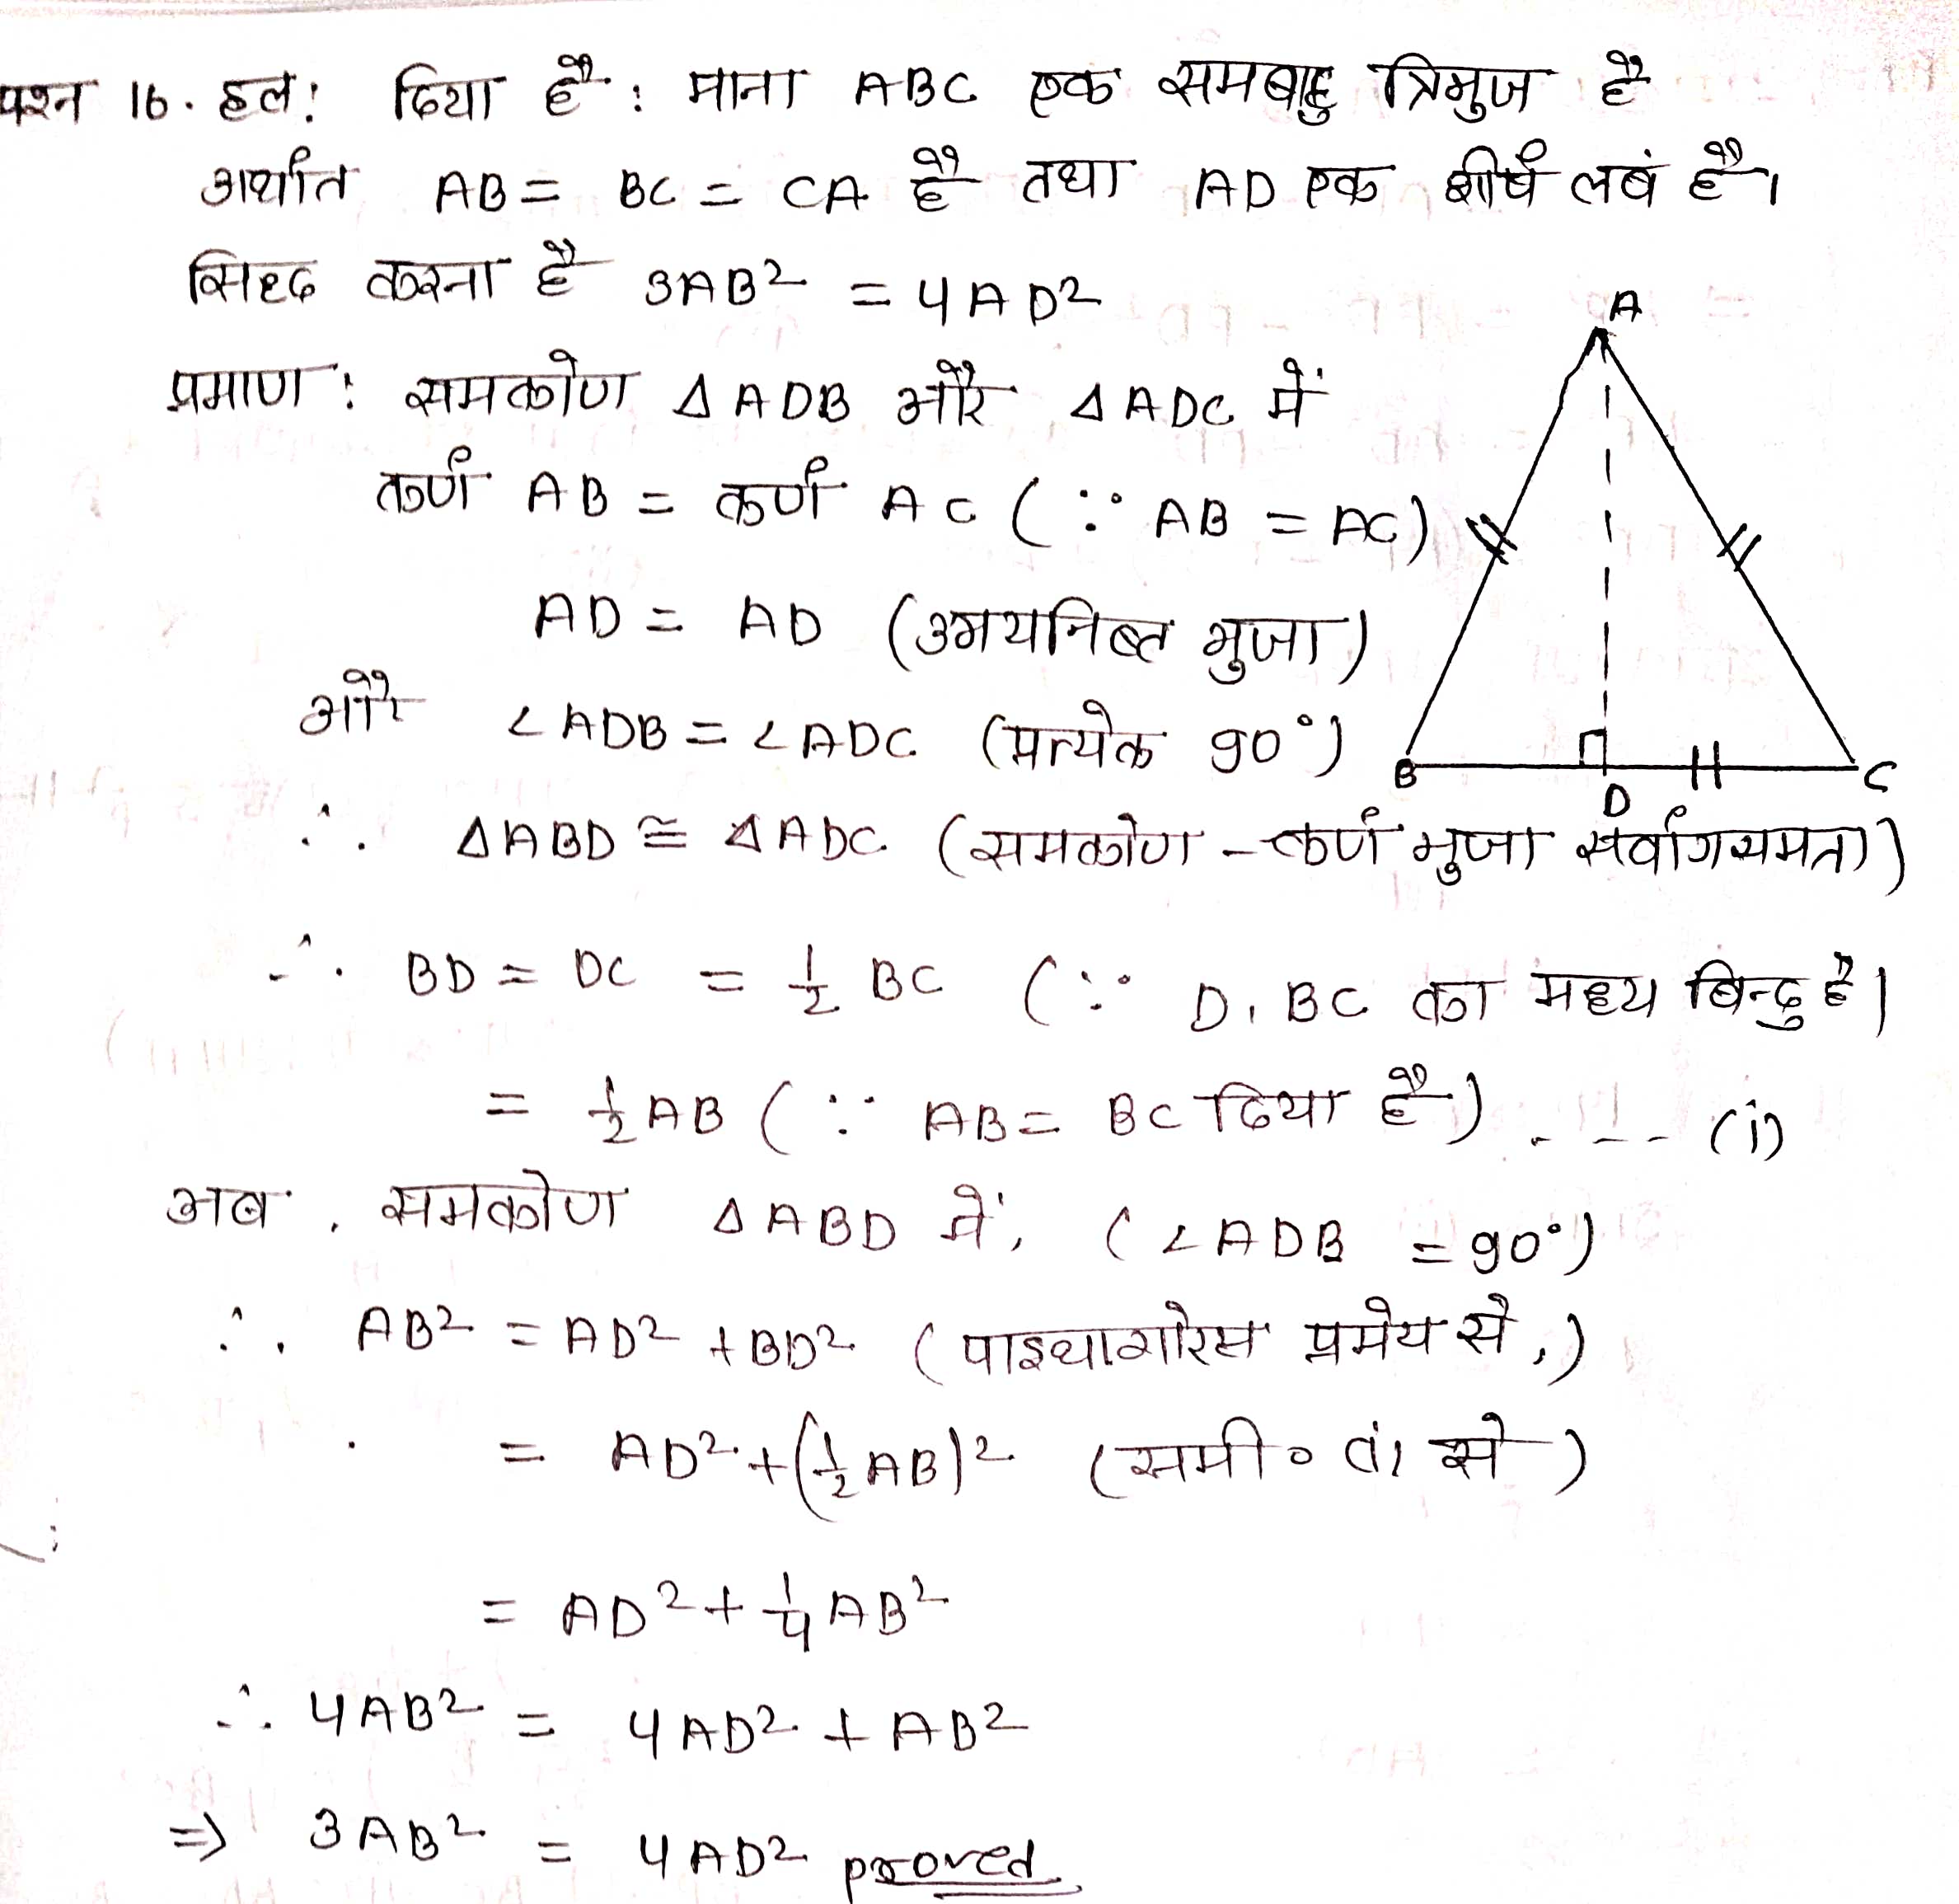 प्रश्न 16. हल: दिया है : माना ABC एक समबाहु त्रिभुज है
अर्थात AB = BC = CA है तथा AD एक शीर्ष लबं है।
सिद्ध करना है 3AB² = 4AD²
A
प्रमाण : समकोण ΔADB और ΔADC में
कर्ण AB = कर्ण AC (∵ AB = AC)
AD = AD (उभयनिष्ठ भुजा)
और ∠ADB = ∠ADC (प्रत्येक 90°)
B D C
∴ ΔABD ≅ ΔADC (समकोण – कर्ण भुजा सर्वांगसमता)
∴ BD = DC = 1/2 BC (∵ D, BC का मध्य बिन्दु है।
= 1/2 AB (∵ AB = BC दिया है) - - - - (i)
अब, समकोण ΔABD में, (∠ADB = 90°)
∴ AB² = AD² + BD² (पाइथागोरस प्रमेय से,)
= AD² + (1/2 AB)² (समी० (i) से)
= AD² + 1/4 AB²
∴ 4AB² = 4AD² + AB²
⇒ 3AB² = 4AD² proved